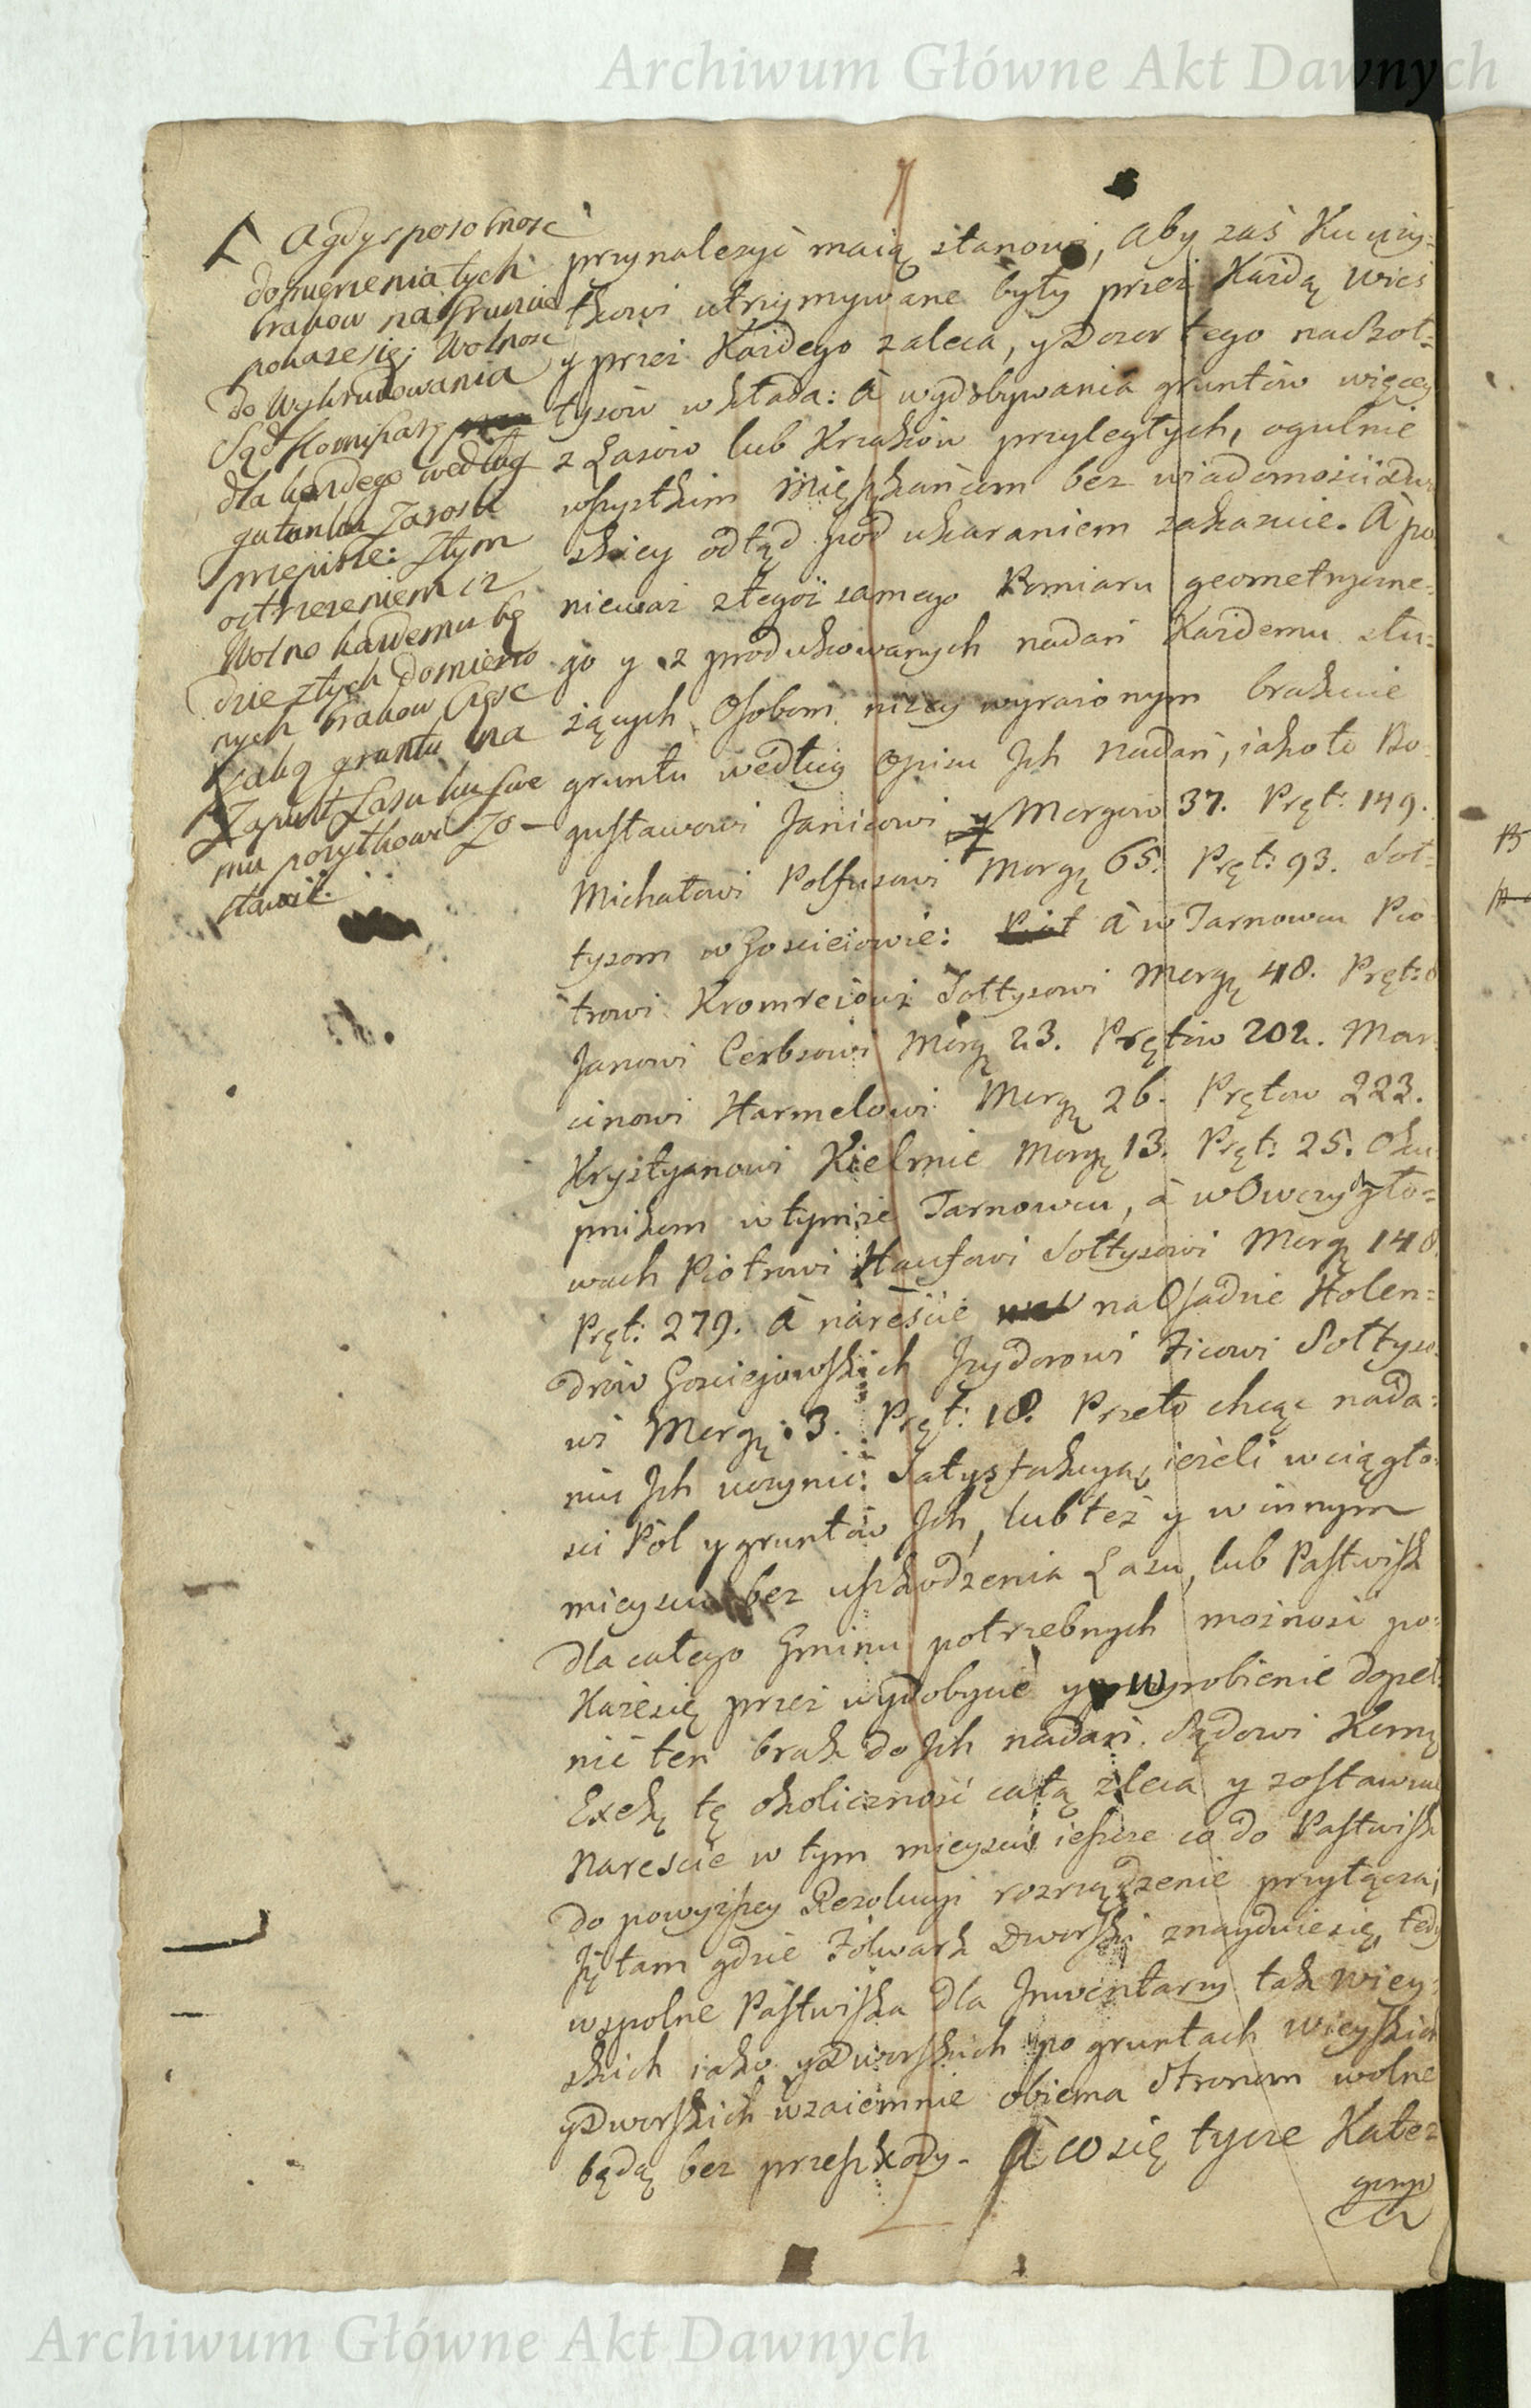 Archiwum Główne Akt Dawnych
A gdy sposobnosc
domierzenia tych
brakow na Gruncie
pokaze się; Wolnosc
do Wykrudowania
Sąd Komisarz
dla każdego według
gatunku Zarosli
przepisze: Ztym
ostrzezeniem iz
Wolno każdemu bę
dzie ztych domierzo
nych brakow częsc
lubą gruntu na
Zapust Lasu ku swe
mu pozytkowi Zo-
stawić.
przynalezyć maią stanowi, Aby zaś Ku uzy=
tkowi utrzymywane były przez Każdą Wieś
y przez Każdego zaleca, y Dozor tego nad Soł=
tysów wkłada: A wydobywania gruntów więcey
z Lasów lub Krzaków przyległych, ogulnie
wszystkim Mięszkańcom bez wiadomości Dwor
skiey odtąd pod ukaraniem zakazuie. A po
nieważ ztegoż samego Pomiaru geometryczne=
go y z produkowanych nadań Każdemu słu=
żących, Osobom niżey wyrażonym brakuie
gruntu według Opisu Jch nadań, iako to Bo
gusławowi Janicowi y Morgow 37. Pręt: 149.
Michałowi Polfusowi Morgę 65. Pręt: 93. Soł=
tysom w Gosciejowie: A w Tarnowcu Pio
trowi Kromreiowi Sołtysowi Morgę 48. Pręt:
Janowi Cerbsowi Morgę 23. Prętów 202. Mar
cinowi Harmelowi Morgę 26. Prętow 223.
Krystyanowi Kielmie Morgę 13. Pręt: 25. Oku
pnikom w tymże Tarnowcu, à w Owczychgło=
wach Piotrowi Haufowi Sołtysowi Morgę 148
Pręt: 279. A nareście na Osadzie Holen=
drów Gosciejowskich Jzydorowi Ticowi Sołtyso
wi Morgę: 3. Pręt: 18. Przeto chcąc nada=
niu Jch uczynić Satysfakcyą, ieżeli w ciągło=
sci Pól y gruntów Jch, lub też y w innym
mieyscu bez uszkodzenia Lasu, lub Pastwisk
dla całego Gminu potrzebnych możność po=
każe się przez wydobycie y wyrobienie dopeł=
nić ten brak do Jch nadań. Sądowi Komę
Exekę tę okoliczność całą zleca y zostawuie
Nareście w tym mieyscu ieszcze co do Pastwisk
do powyższey Rezolucyi rozrządzenie przyłącza,
Jż tam gdzie Folwark Dworski znayduie się, tedy
wspolne Pastwiska dla Jnwentarzy tak wiey=
skich iako y Dworskich po gruntach wieyskich
y Dworskich wzaiemnie obiema Stronom wolne
będą bez przeszkody. A co się tycze Kate
Archiwum Główne Akt Dawnych